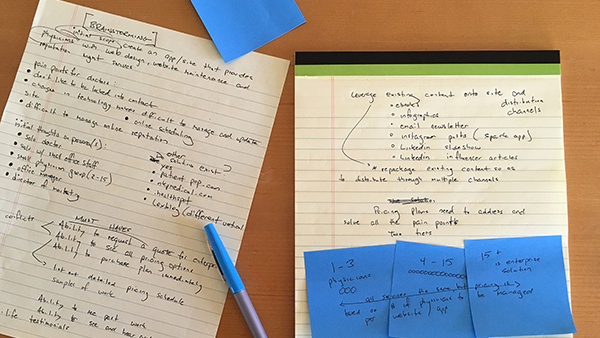 [BRAINSTORMING]
initial scope: create an app/site that provides
physicians with web design, website maintenance and
reputation mgmt services.
pain points for doctors:
• don't like to be locked into contract
• changes in technology makes difficult to manage and update
site
• online scheduling
• difficult to manage online reputation
initial thoughts on persona(s):
• solo doctor
• solo w/ small office staff
• small physician group (2-15)
• office manager
• director of marketing
other
solutions exist
yes
• patient pop.com
• mkmedical.com
• healthspot
• (different vertical
MUST HAVES
conflicts
Ability to request a quote for enterprise
Ability to see all pricing options
Ability to purchase plan immediately
but not detailed pricing schedule
samples of work
Ability to see past work
Ability to see and hear
life testimonials
Leverage existing content onto site and
distribution
channels
• ebooks
• infographics
• email newsletter
• instagram posts (spark app)
• LinkedIn slideshow
• LinkedIn influencer articles
* repackage existing content so as
to distribute through multiple channels
Pricing plans need to address and
solve all the pain points
Two tiers
1-3
physicians
4-15
15+
is enterprise
solution
all services the same, but pricing is
based on # of physicians to be managed
per website/app